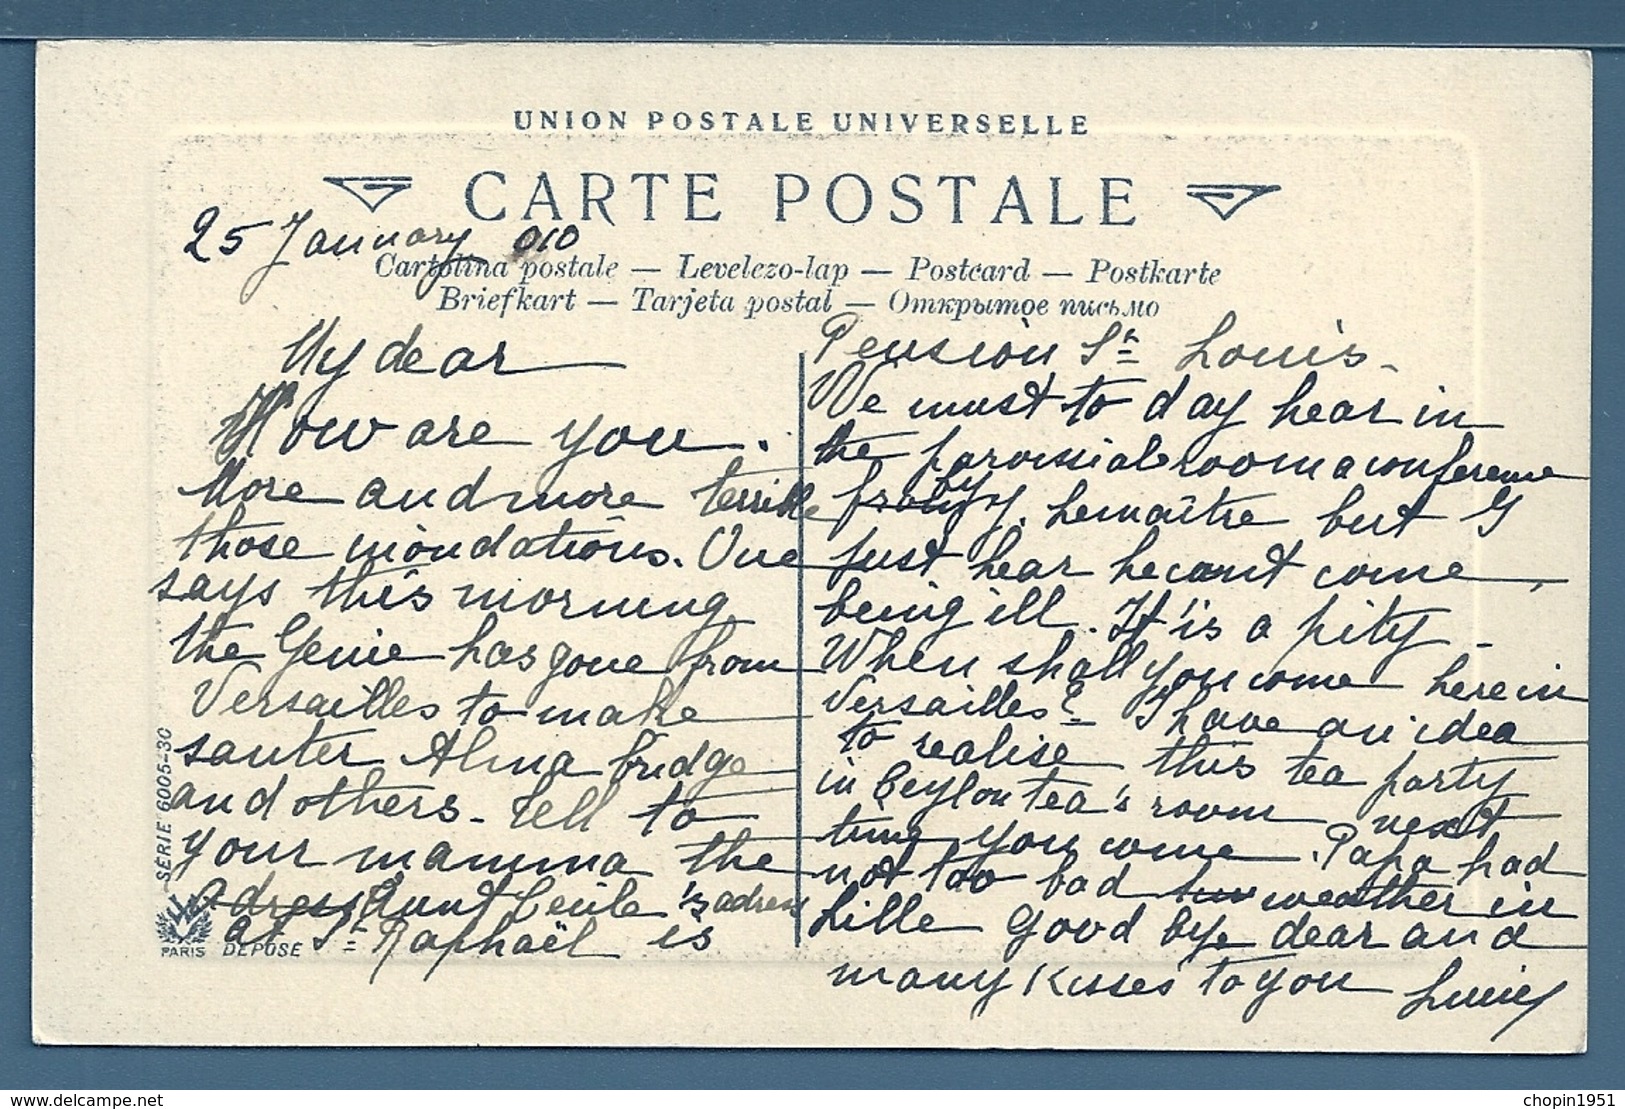 UNION POSTALE UNIVERSELLE
CARTE POSTALE
25 January 910
Cartolina postale — Levelezo-lap — Postcard — Postkarte
Briefkart — Tarjeta postal — Открытое письмо
My dear
How are you.
More and more terrible
those inondations. One
says this morning
the Génie has gone from
Versailles to make
sauter Alma bridge
and others. Tell to
your mamma the
adress Aunt Cécile 's adress
at St Raphaël is
Pension St Louis.
We must to day hear in
the paroissiale room a conference
by J. Lemaître but I
just hear he cant come,
being ill. It 'is a pity.
When shall you come here in
Versailles? I have an idea
to realise this tea party
in Ceylon tea's room next
time you come. Papa had
not too bad weather in
Lille Good bye dear and
many kisses to you
SÉRIE 6005-30
PARIS
DÉPOSÉ
chopin1951